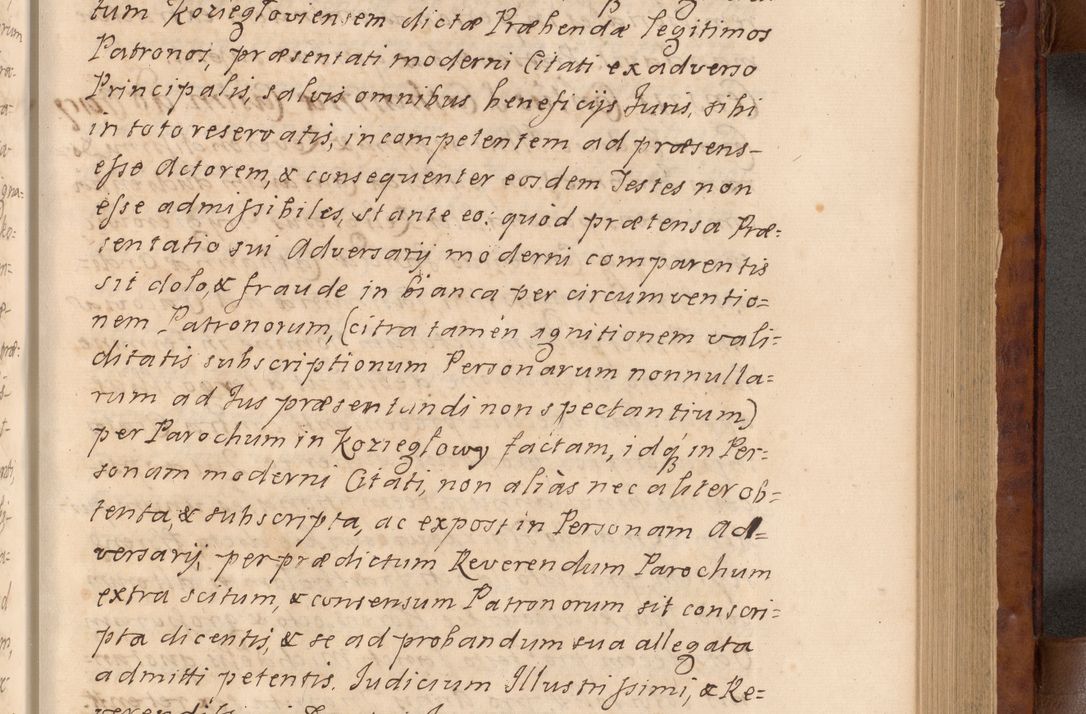 tum Kozieglowiensem dictæ Præbendæ legitimos
Patronos, præsentati moderni Citati ex adverso
Principalis, salvis omnibus beneficijs Juris, sibi
in toto reservatis, incompetentem ad præsens
esse Actorem, & consequenter eosdem Testes non
esse admissibiles, stante eo: quòd prætensa Præ=
sentatio sui Adversarij moderni comparentis
sit dolo, & fraude in bianca per circumventio=
nem Patronorum, (citra tamén agnitionem vali=
ditatis subscriptionum Personarum nonnulla=
rum ad Jus præsentandi non spectantium)
per Parochum in Koziegłowy factam, idq́ in Per=
sonam moderni Citati, non aliàs nec aliter ob=
tenta, & subscripta, ac expost in Personam Ad=
versarij, per prædictum Reverendum Parochum
extra scitum, & consensum Patronorum sit conscri=
pta dicentis, & se ad probandum sua allegata
admitti petentis. Judicium Illustrissimi, & Re=